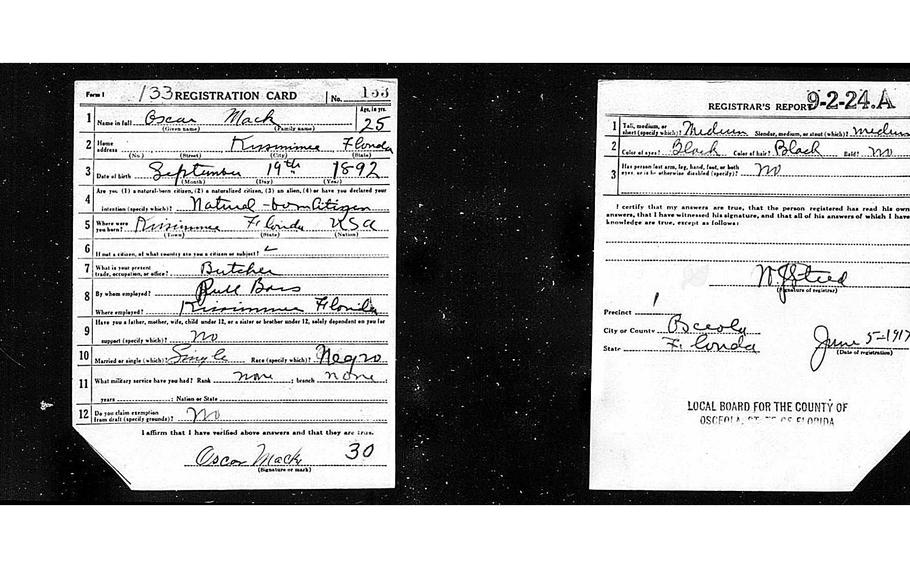 Form 1 133 REGISTRATION CARD No. 133
1 Name in full Oscar Mack Age, in yrs. 25
(Given name) (Family name)
2 Home address Kissimmee Florida
(No.) (Street) (City) (State)
3 Date of birth September 19th 1892
(Month) (Day) (Year)
4 Are you (1) a natural-born citizen, (2) a naturalized citizen, (3) an alien, (4) or have you declared your
intention (specify which)? Natural-born Citizen
5 Where were you born? Kissimmee Florida USA
(Town) (State) (Nation)
6 If not a citizen, of what country are you a citizen or subject?
7 What is your present trade, occupation, or office? Butcher
8 By whom employed? Bros
Where employed? Kissimmee Florida
9 Have you a father, mother, wife, child under 12, or a sister or brother under 12, solely dependent on you for
support (specify which)? No
10 Married or single (which)? Single Race (specify which)? Negro
11 What military service have you had? Rank none ; branch none ;
years ; Nation or State
12 Do you claim exemption from draft (specify grounds)? No
I affirm that I have verified above answers and that they are true.
Oscar Mack 30
(Signature or mark)
REGISTRAR'S REPORT 9-2-24.A
1 Tall, medium, or short (specify which)? Medium Slender, medium, or stout (which)? medium
2 Color of eyes? Black Color of hair? Black Bald? No
3 Has person lost arm, leg, hand, foot, or both
eyes, or is he otherwise disabled (specify)? No
I certify that my answers are true, that the person registered has read his own
answers, that I have witnessed his signature, and that all of his answers of which I have
knowledge are true, except as follows:
(Signature of registrar)
Precinct 1
City or County Osceola
State Florida June 5-1917
(Date of registration)
LOCAL BOARD FOR THE COUNTY OF
OSCEOLA, STATE OF FLORIDA